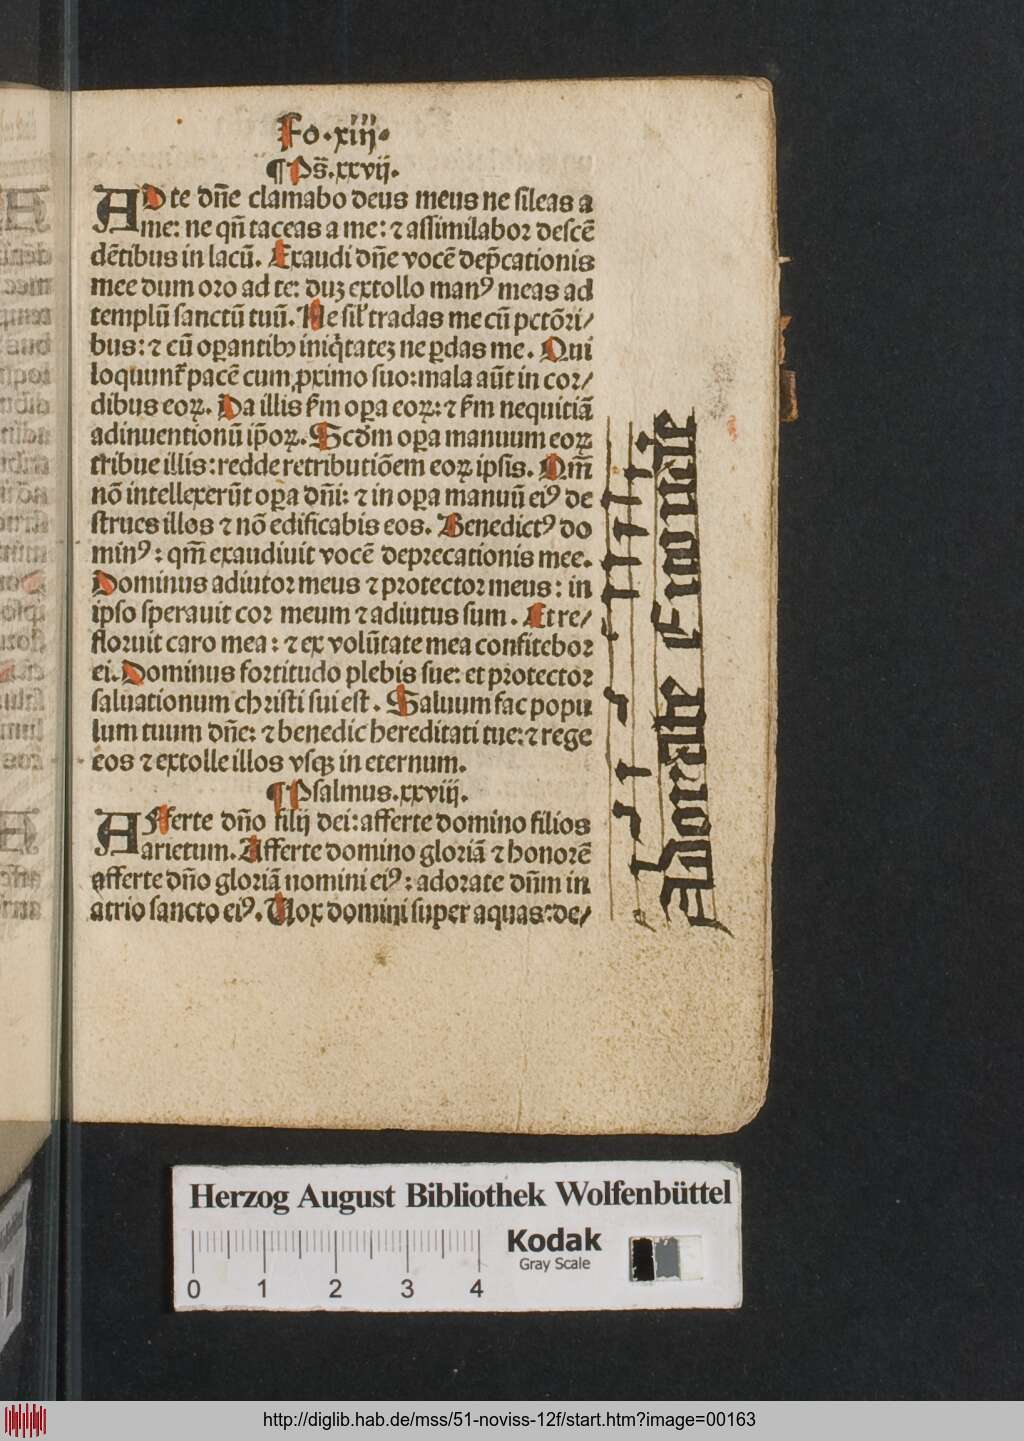 Fo·xiij·
¶Ps̄.xxvij.
AD te dn̄e clamabo deus meus ne sileas a
me: ne qn̄ taceas a me: ⁊ assimilabor descē
dētibus in lacū. Exaudi dn̄e vocē dep̄cationis
mee dum oro ad te: duꝫ extollo manꝰ meas ad
templū sanctū tuū. Ne sil'tradas me cū pctōri/
bus: ⁊ cū oꝑantibꝰ iniq̇tateꝫ ne ꝑdas me. Qui
loquunt᷑ pacē cum ꝓximo suo: mala aūt in cor/
dibus eoꝝ. Da illis ẜm oꝑa eoꝝ: ⁊ ẜm nequitiā
adinuentionū ip̄oꝝ. Scd̄m oꝑa manuum eoꝝ
tribue illis: redde retributiōem eoꝝ ipsis. Qm̄
nō intellexerūt oꝑa dn̄i: ⁊ in oꝑa manuū eiꝰ de
strues illos ⁊ nō edificabis eos. Benedictꝰ do
minꝰ: qm̄ exaudiuit vocē deprecationis mee.
Dominus adiutor meus ⁊ protector meus: in
ipso sperauit cor meum ⁊ adiutus sum. Et re/
floruit caro mea: ⁊ ex volūtate mea confitebor
ei. Dominus fortitudo plebis sue: et protector
saluationum christi sui est. Saluum fac popu
lum tuum dn̄e: ⁊ benedic hereditati tue: ⁊ rege
eos ⁊ extolle illos vsqꝫ in eternum.
¶Psalmus.xxviij.
AFferte dn̄o filij dei: afferte domino filios
arietum. Afferte domino gloriā ⁊ honorē
afferte dn̄o gloriā nomini eiꝰ: adorate dn̄m in
atrio sancto eiꝰ. Uox domini super aquas: de/
Herzog August Bibliothek Wolfenbüttel
Kodak
Gray Scale
0 1 2 3 4
http://diglib.hab.de/mss/51-noviss-12f/start.htm?image=00163